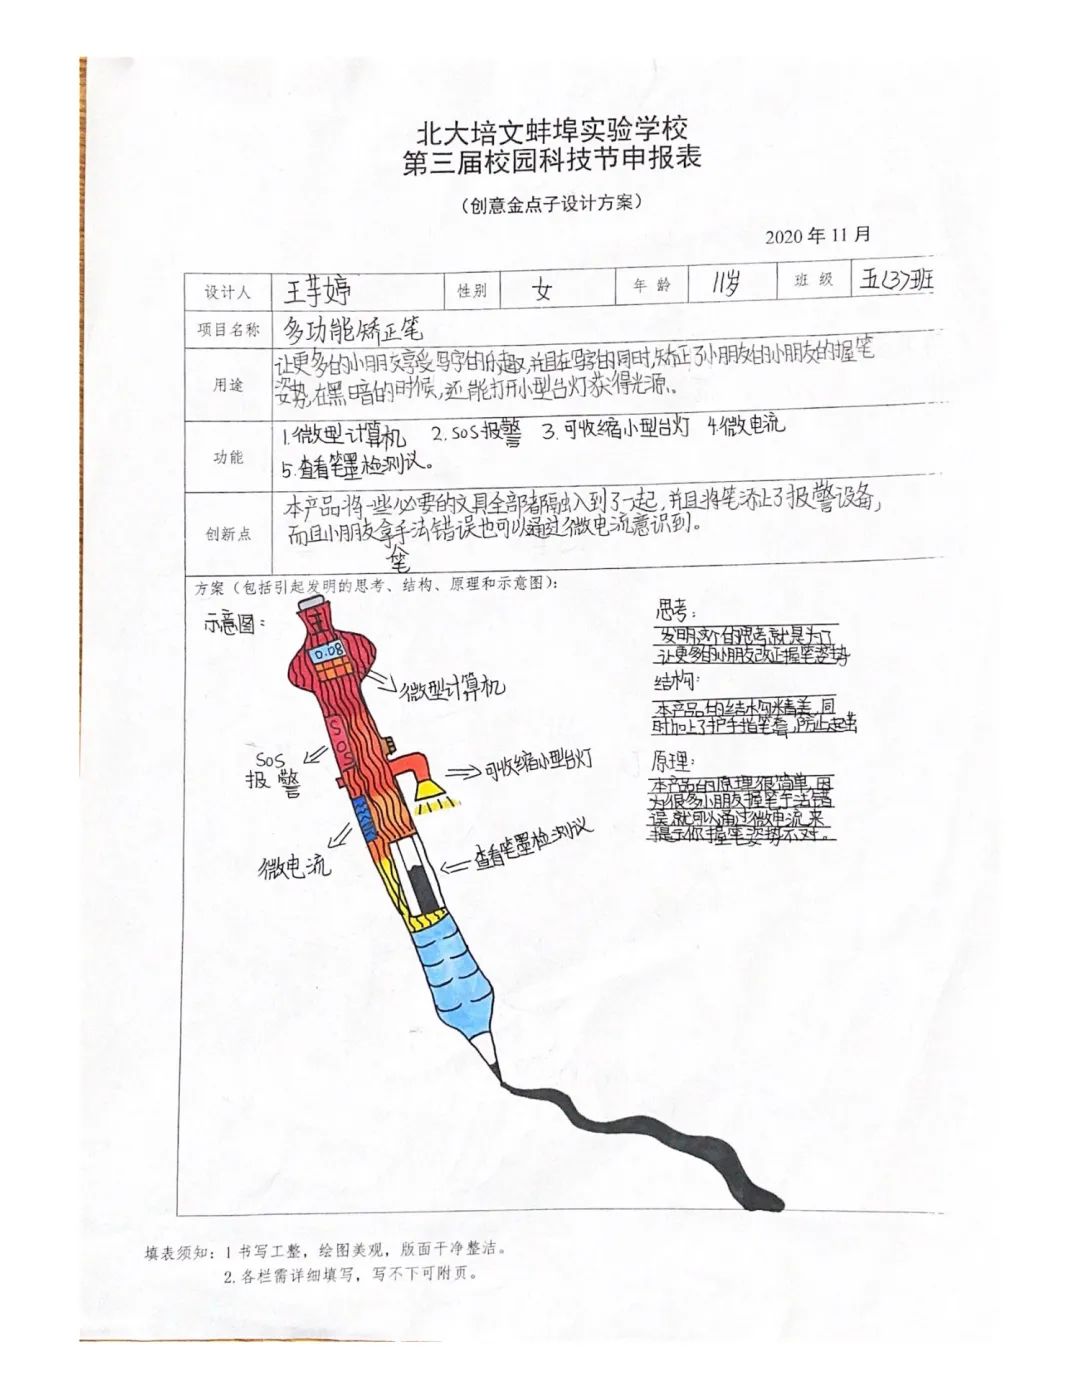 北大培文蚌埠实验学校
第三届校园科技节申报表
（创意金点子设计方案）
2020年11月
设计人 王芋婷 性别 女 年龄 11岁 班级 五(3)班
项目名称 多功能矫正笔
用途 让更多的小朋友享受写字的乐趣,并且在写字的同时,矫正了小朋友的小朋友的握笔
姿势,在黑暗的时候,还能打开小型台灯获得光源。
功能 1.微型计算机 2.SOS报警 3.可收缩小型台灯 4.微电流
5.查看笔墨检测议。
创新点 本产品将一些必要的文具全部都融入到了一起,并且将笔添上了报警设备,
而且小朋友拿笔手法错误也可以通过微电流意识到。
方案（包括引起发明的思考、结构、原理和示意图）：
示意图：
0.08
微型计算机
SOS
SOS
报警
可收缩小型台灯
微电流
查看笔墨检测议
思考：
发明这个的思考就是为了
让更多的小朋友改正握笔姿势
结构：
本产品的结构精美,同
时加上了护手指笔套,防止走出
原理：
本产品的原理很简单,因
为很多小朋友握笔手法错
误,就可以通过微电流来
提示你握笔姿势不对。
填表须知：1 书写工整，绘图美观，版面干净整洁。
2.各栏需详细填写，写不下可附页。